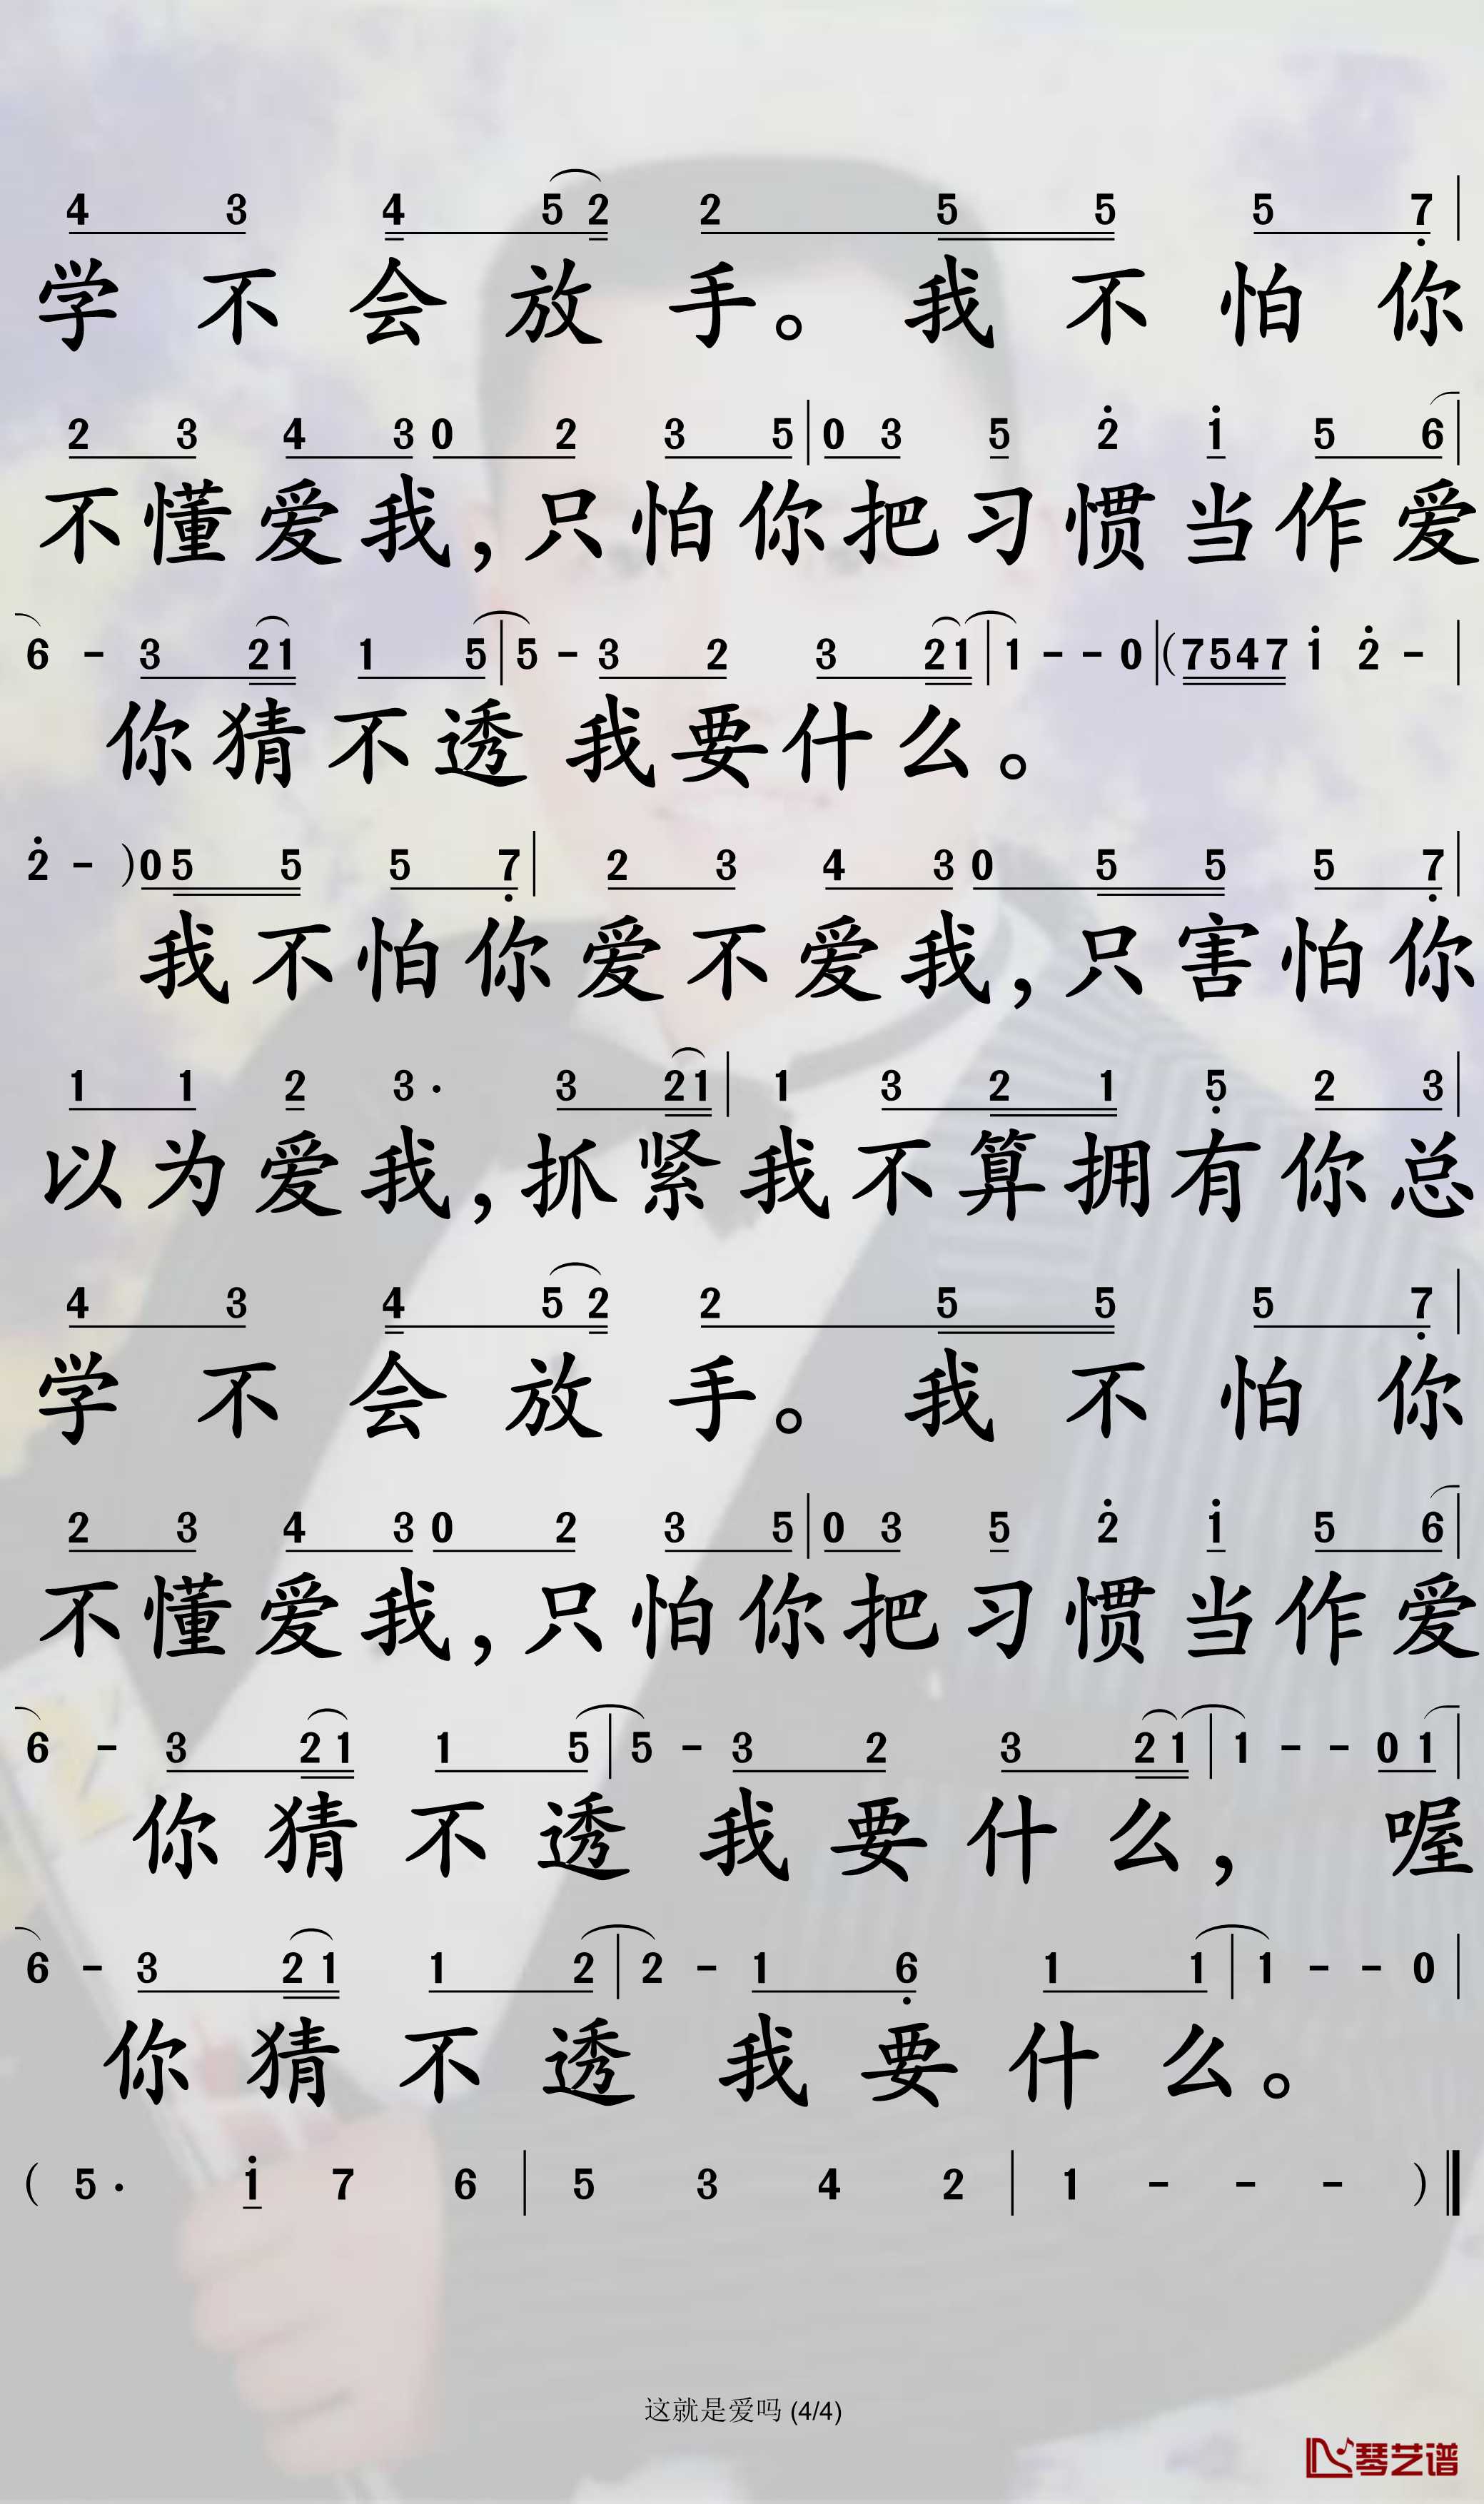 4 3 4 5 2 2 5 5 5 7 |
学不会放手。我不怕你
2 3 4 3 0 2 3 5 | 0 3 5 2 1 5 6 |
不懂爱我，只怕你把习惯当作爱
6 - 3 2 1 1 5 | 5 - 3 2 3 2 1 | 1 - - 0 | ( 7 5 4 7 1 2 - |
你猜不透我要什么。
2 - ) 0 5 5 5 7 | 2 3 4 3 0 5 5 5 7 |
我不怕你爱不爱我，只害怕你
1 1 2 3 · 3 2 1 | 1 3 2 1 5 2 3 |
以为爱我，抓紧我不算拥有你总
4 3 4 5 2 2 5 5 5 7 |
学不会放手。我不怕你
2 3 4 3 0 2 3 5 | 0 3 5 2 1 5 6 |
不懂爱我，只怕你把习惯当作爱
6 - 3 2 1 1 5 | 5 - 3 2 3 2 1 | 1 - - 0 1 |
你猜不透我要什么，喔
6 - 3 2 1 1 2 | 2 - 1 6 1 1 | 1 - - 0 |
你猜不透我要什么。
( 5 · 1 7 6 | 5 3 4 2 | 1 - - - ) ||
这就是爱吗 (4/4)
琴艺谱